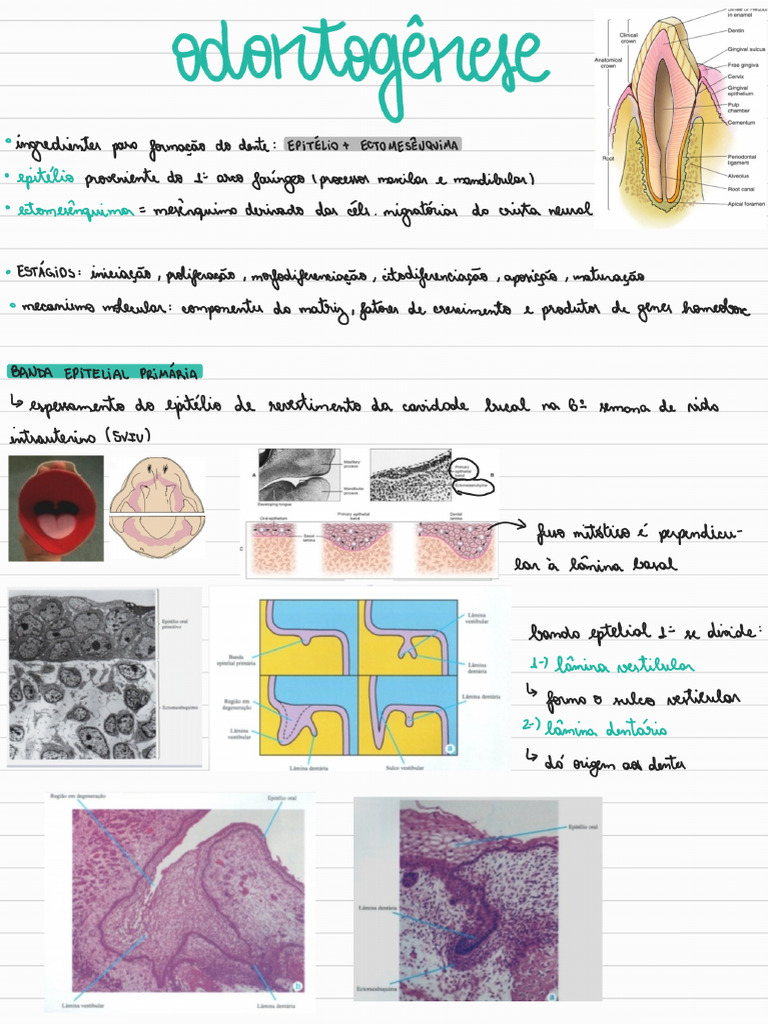 odontogênese
Striae of Retzius
in enamel
Clinical
crown
Dentin
Anatomical
crown
Gingival sulcus
Free gingiva
Cervix
Gingival
epithelium
Pulp
chamber
Cementum
Root
Periodontal
ligament
Alveolus
Root canal
Apical foramen
• ingredientes para formação do dente: EPITÉLIO + ECTOMESÊNQUIMA
• epitélio proveniente do 1º arco faríngeo (processos maxilar e mandibular)
• ectomesênquima = mesênquima derivado das céls. migratórias da crista neural
• ESTÁGIOS: iniciação, proliferação, morfodiferenciação, citodiferenciação, aposição, maturação
• mecanismo molecular: componentes da matriz, fatores de crescimento e produtos de genes homeobox
BANDA EPITELIAL PRIMÁRIA
↳ espessamento do epitélio de revestimento da cavidade bucal na 6ª semana de vida
intrauterina (SVIU)
Maxillary
process
Mandibular
process
Developing tongue
A
Primary
epithelial
band
Ectomesenchyme
B
Oral epithelium
Primary epithelial
band
Dental
lamina
Basal
lamina
C
fuso mitótico é perpendicu-
lar à lâmina basal
Epitélio oral
primitivo
Ectomesênquima
Banda
epitelial primária
Lâmina
vestibular
Lâmina
dentária
Região em
degeneração
Lâmina
vestibular
Lâmina dentária
Lâmina dentária
Sulco vestibular
a
banda eptelial 1ª se divide:
1-) lâmina vestibular
↳ forma o sulco vestibular
2-) lâmina dentária
↳ dá origem aos dentes
Região em degeneração
Epitélio oral
Lâmina vestibular
Lâmina dentária
b
Epitélio oral
Lâmina dentária
Ectomesênquima
a